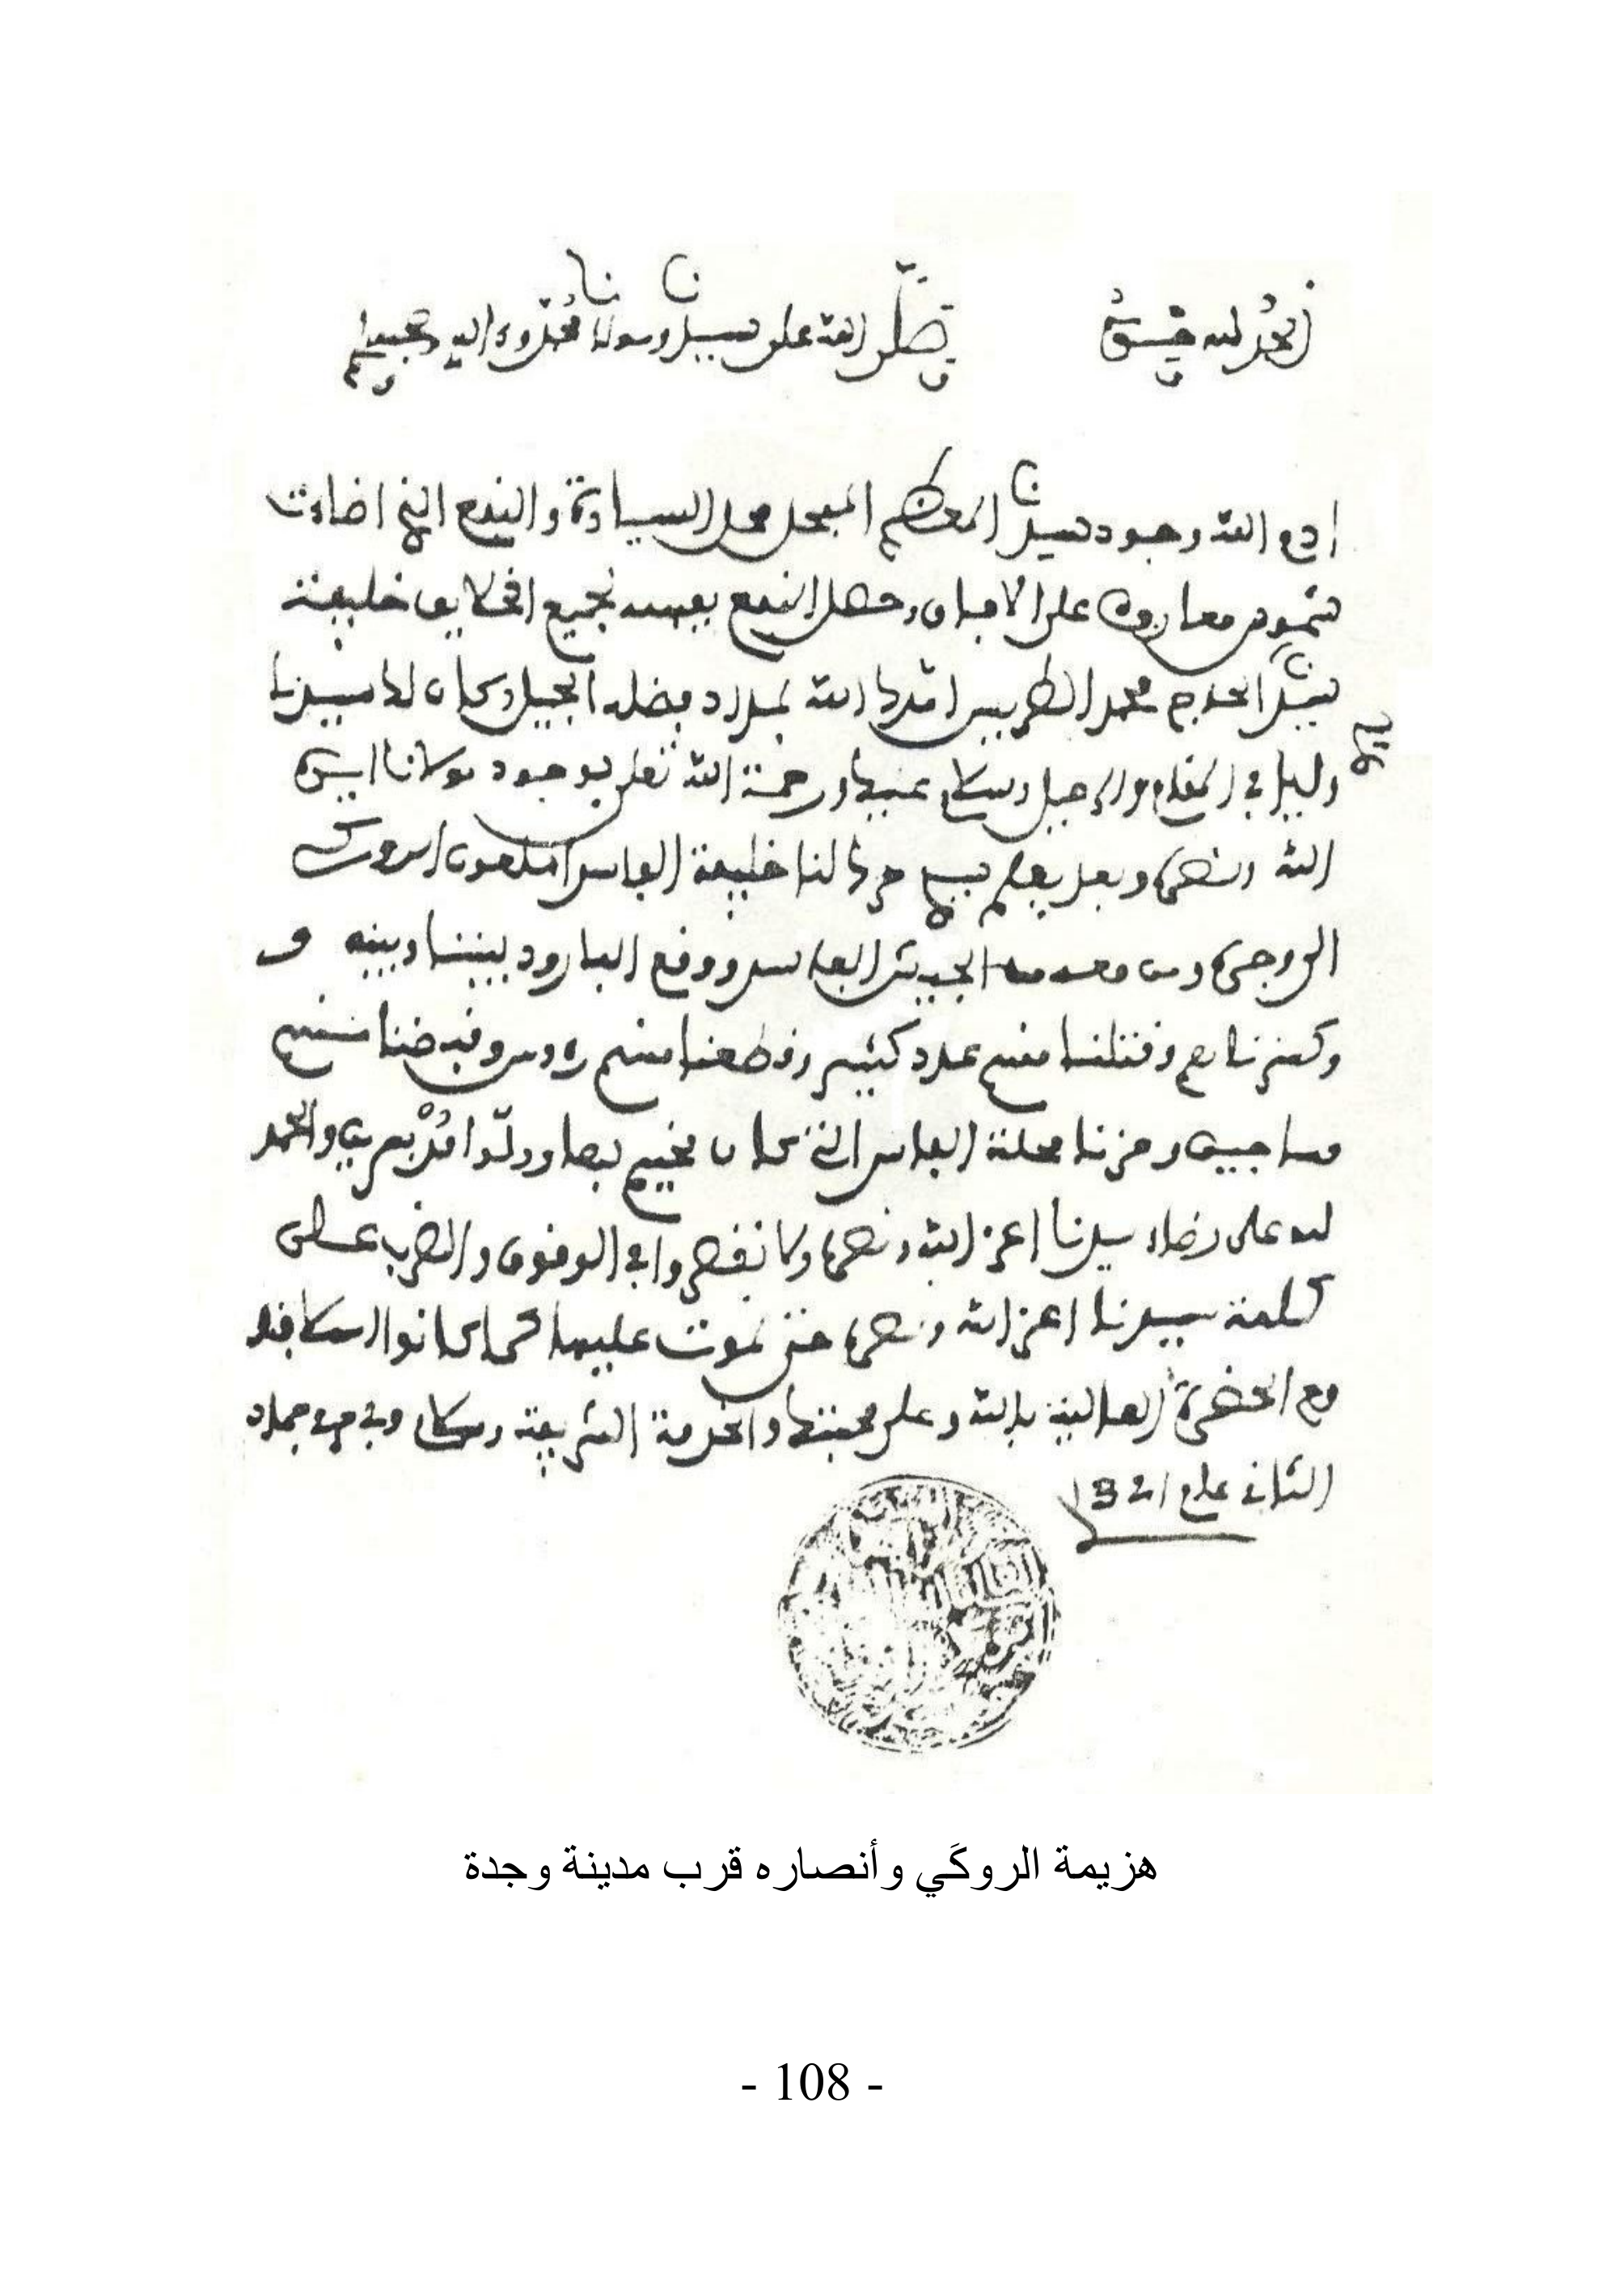 الحمد لله وحده وصلى الله على سيدنا ومولانا محمد وعلى اله وصحبه
ادم الله وجود سيدنا المعظم المبجل محل السيادة و النبع التي اضاءت
شموس معارفه على الافاق وحصل النبع بعهده لجميع الخلايق خليفة
سيدنا الحاج محمد الطريس امدك الله بمداد فضله الجميل وكان لك سيدنا
دليلا في المقام والرحيل وسلام عليك ورحمة الله تعلى بوجود مولانا ايده
الله ونصره وبعد يعلم سيدي حرك لنا خليفة الفاسد الملعون الروكي
الى وجدة ومن معه من الجيش الفاسد ووقع البارود بيننا وبينه و
وكسرناهم وقتلنا منهم عدد كثير وقطعنا منهم رءوس وقبضنا منهم
مساجين وحزنا محلة الفاسد الذي كان مخيم بها وولوا مدبرين والحمد
لله على رضاء سيدنا اعز الله ونصره ولا نقصروا في الوقوف والضرب على
كلمة سيدنا اعز الله ونصره حتى نموت عليها كما كانوا اسلافنا
مع الحضرة العالية بالله وعلى محبتك والخدمة الشريفة وسلام وفي جماد
الثاني عام 1321
هزيمة الروكَي وأنصاره قرب مدينة وجدة
- 108 -